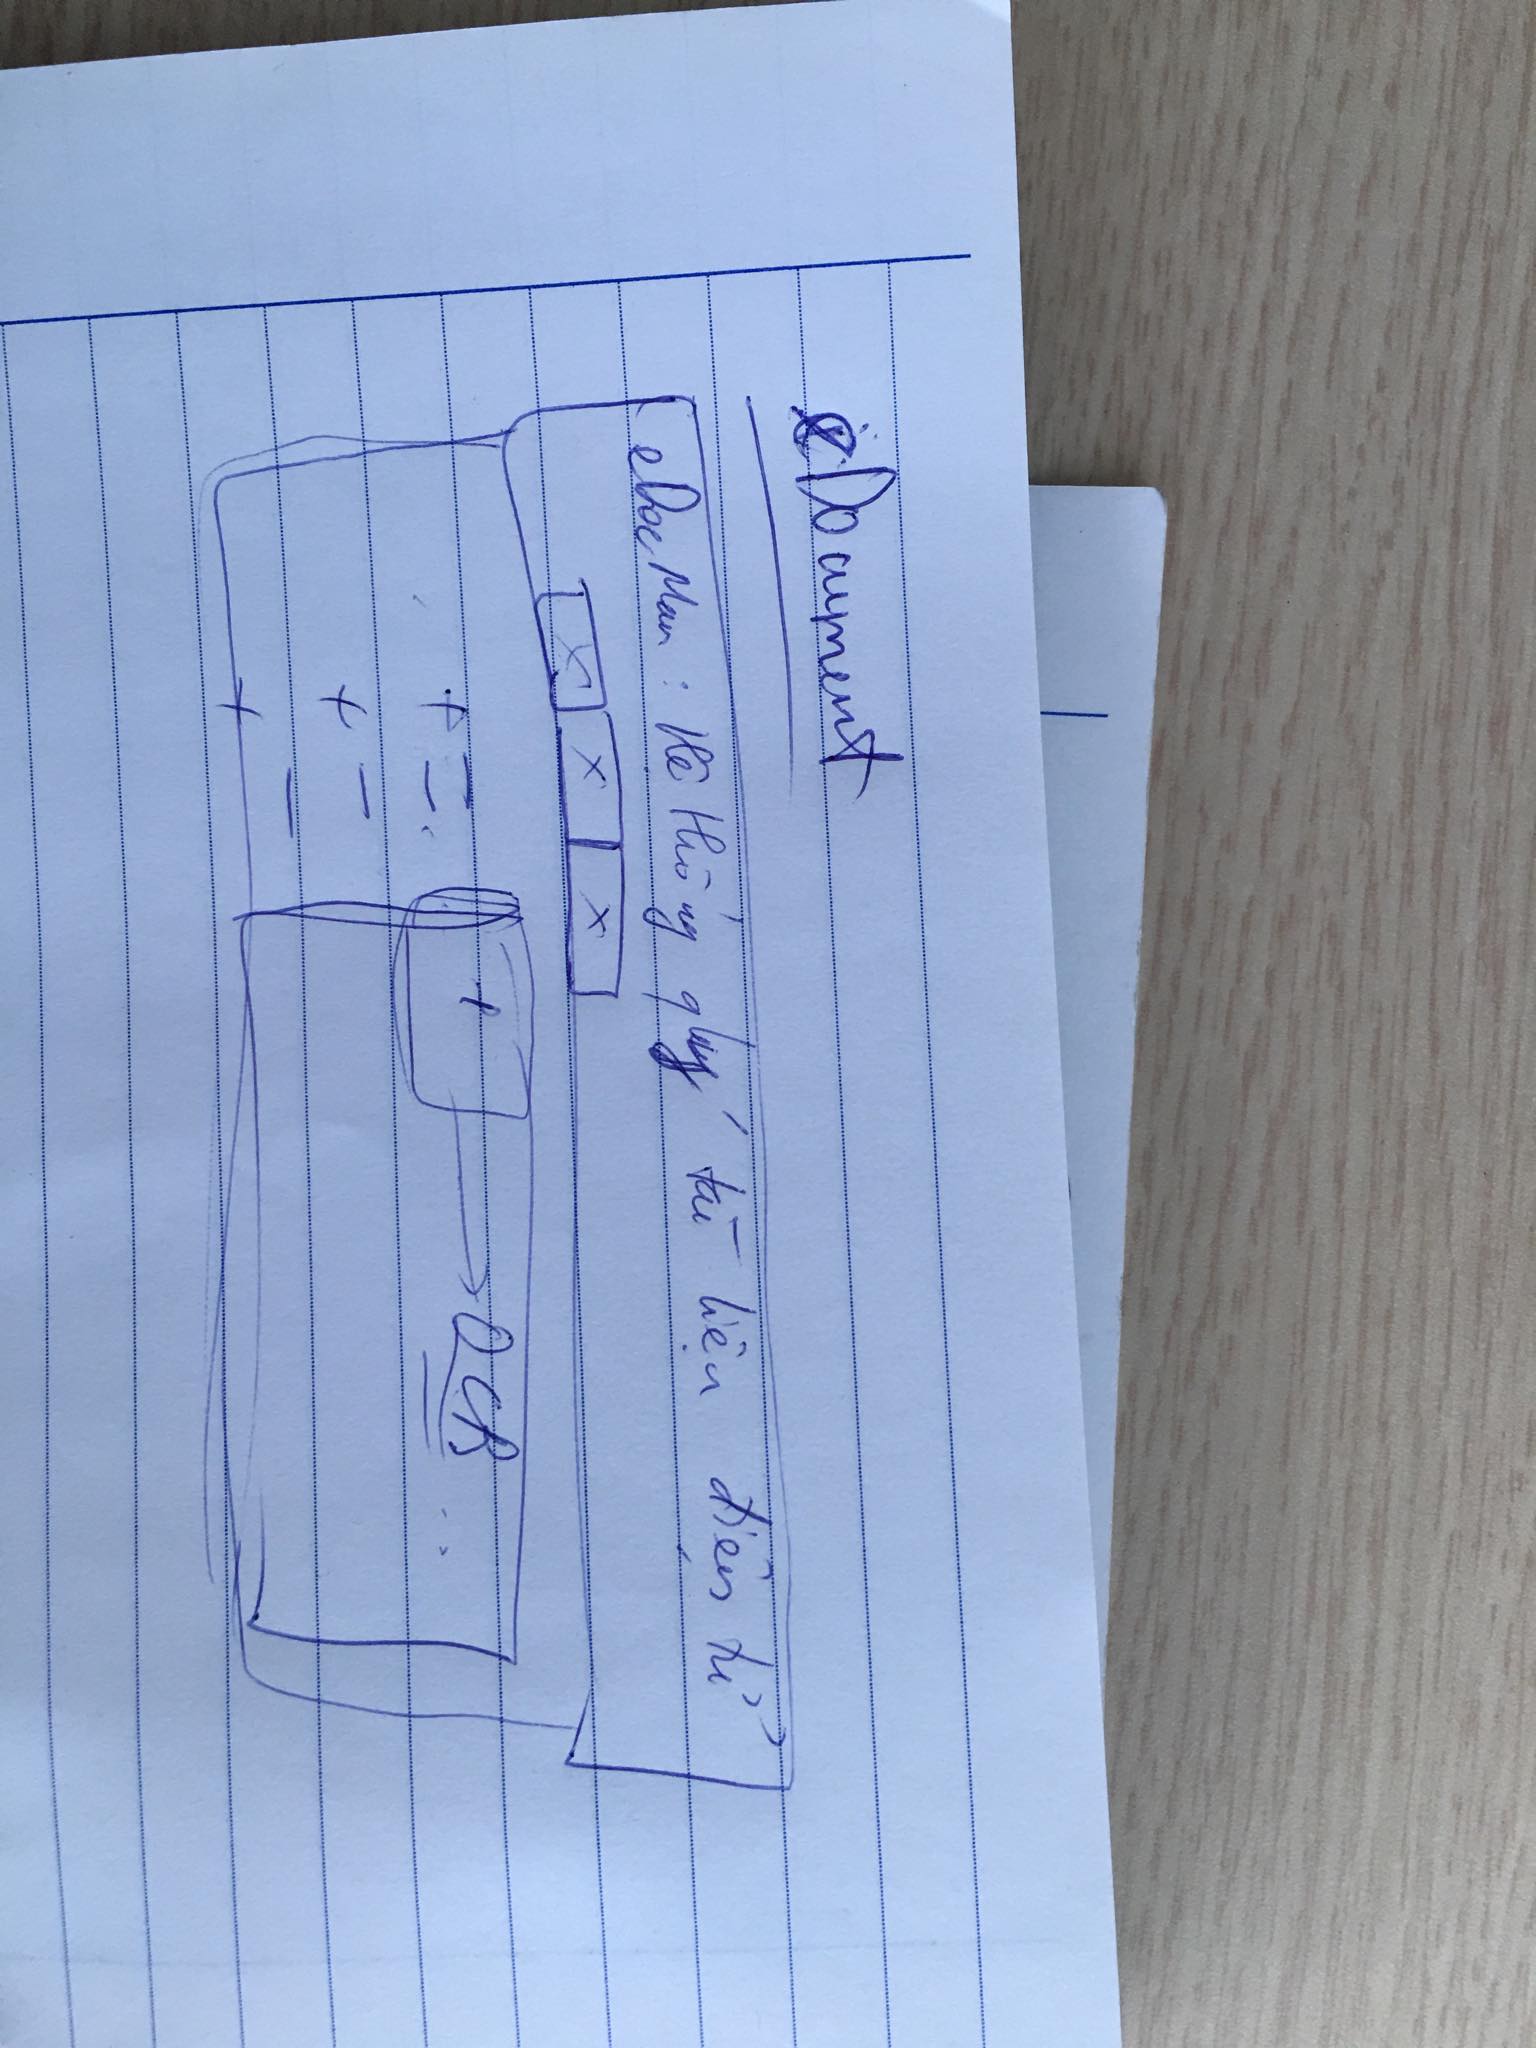 eDocument
eDocMan: Hệ thống quản lý tài liệu điện tử
x x x
+ OCR ...
+ -
+ -
+ -